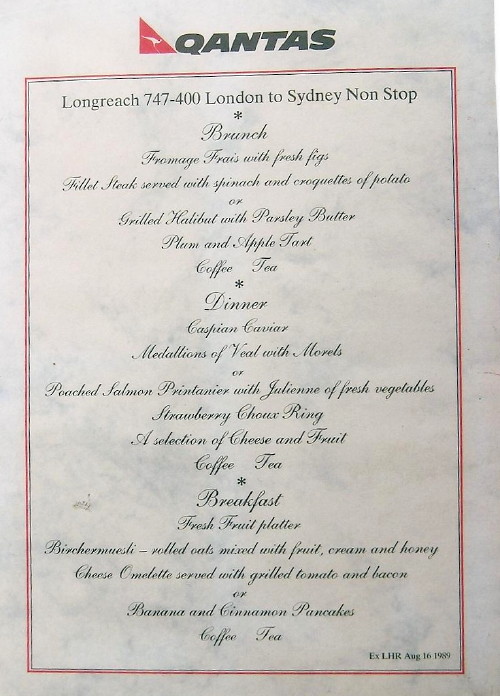 QANTAS
Longreach 747-400 London to Sydney Non Stop
*
Brunch
Fromage Frais with fresh figs
Fillet Steak served with spinach and croquettes of potato
or
Grilled Halibut with Parsley Butter
Plum and Apple Tart
Coffee Tea
*
Dinner
Caspian Caviar
Medallions of Veal with Morels
or
Poached Salmon Printanier with Julienne of fresh vegetables
Strawberry Choux Ring
A selection of Cheese and Fruit
Coffee Tea
*
Breakfast
Fresh Fruit platter
Birchermuesli – rolled oats mixed with fruit, cream and honey
Cheese Omelette served with grilled tomato and bacon
or
Banana and Cinnamon Pancakes
Coffee Tea
Ex LHR Aug 16 1989